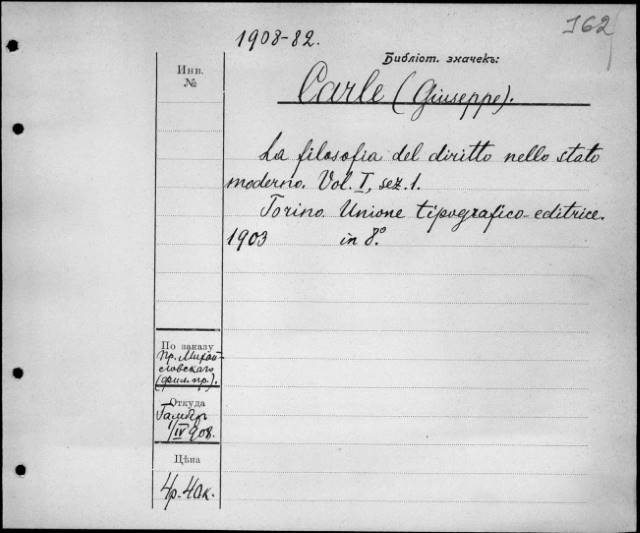 162
1908-82.
Библіот. значекъ:
Инв.
№
Carle (Giuseppe).
La filosofia del diritto nello stato
moderno. Vol. I, sez. 1.
Torino. Unione tipografico-editrice.
1903 in 8°.
По заказу
Пр. Михай-
ловскаго
(фил. пр.).
Откуда
1/IV 908.
Цѣна
4р. 40к.